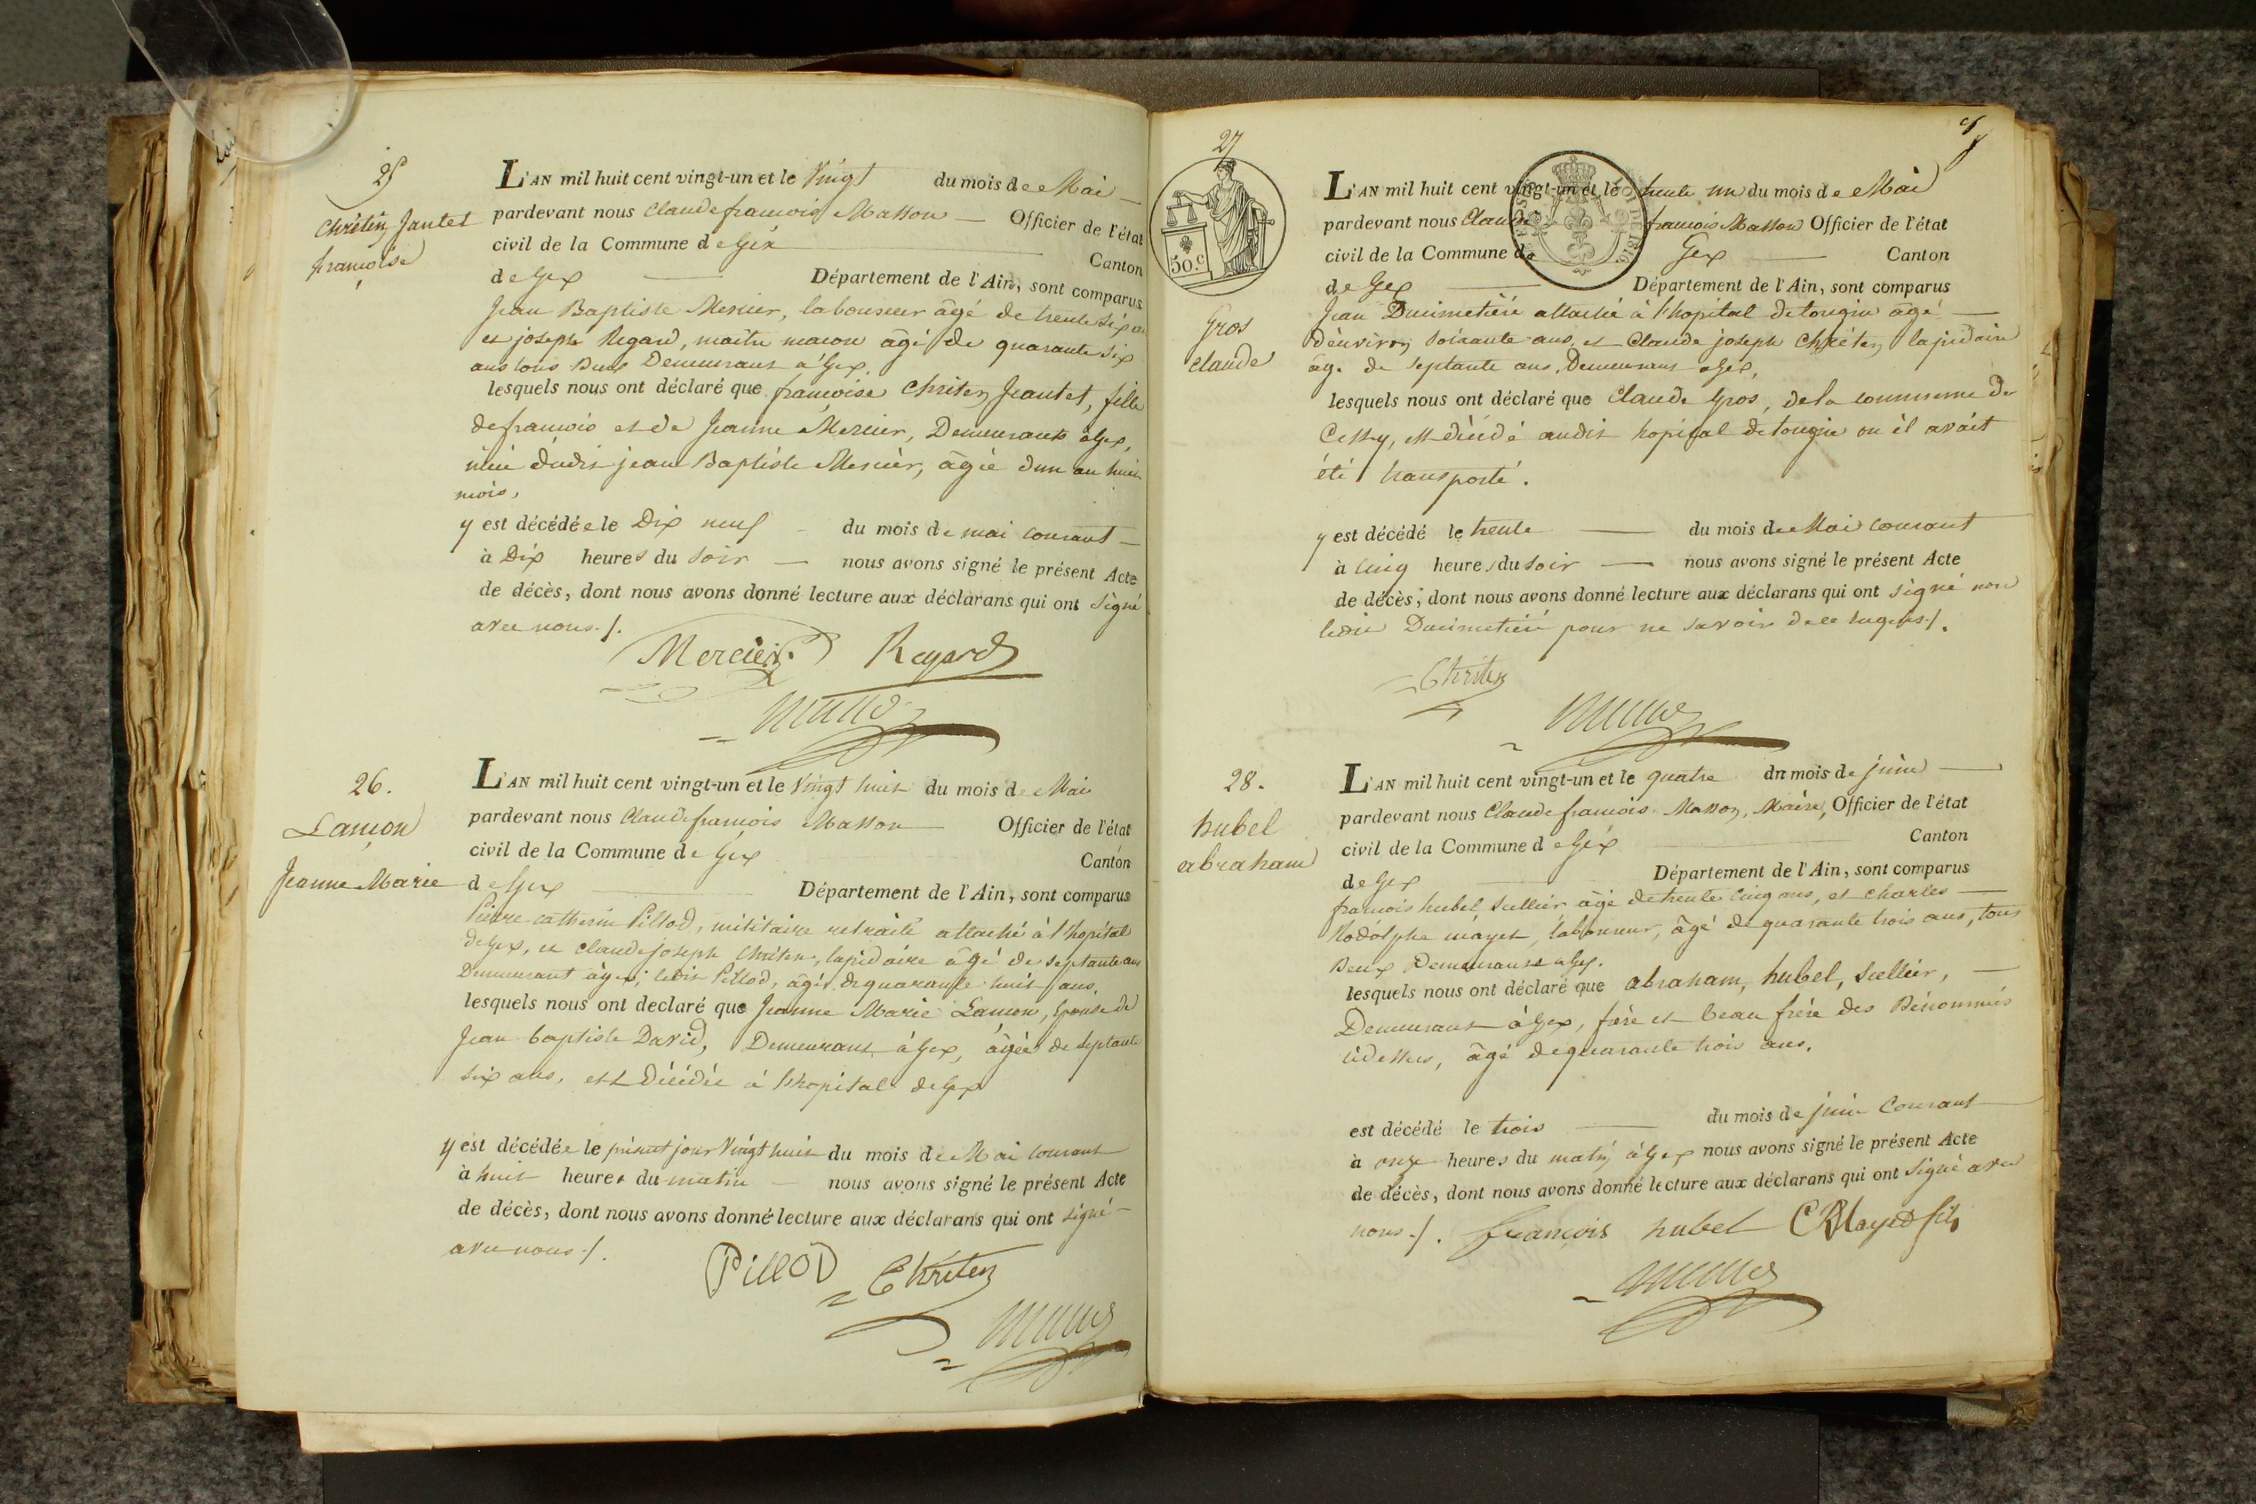 25
Chrêtien Jantet
françoise
L'AN mil huit cent vingt-un et le Vingt du mois de Mai
pardevant nous Claude francois Masson Officier de l'état
civil de la Commune de Gex Canton
de Gex Département de l'Ain, sont comparus
Jean Baptiste Mercier, laboureur âgé de trente six ans
et joseph Regard, maitre macon âgé de quarante six
ans tous Deux Demeurant à Gex,
lesquels nous ont déclaré que françoise Chriten Jeantet, fille
de francois et de Jeanne Mercier, Demeurants à Gex,
nièce dudit jean Baptiste Mercier, âgée d'un an huit
mois,
y est décédée le Dix neuf du mois de mai courant
à Dix heures du soir nous avons signé le présent Acte
de décès, dont nous avons donné lecture aux déclarans qui ont signé
avec nous ./.
Mercier Regard
26.
Lançon
Jeanne Marie
L'AN mil huit cent vingt-un et le Vingt huit du mois de Mai
pardevant nous Claude francois Masson Officier de l'état
civil de la Commune de Gex Canton
de Gex Département de l'Ain, sont comparus
Pierre catherin Pillod, militaire retraité attaché à l'hopital
de Gex, et claude joseph Chriten, lapidaire âgé de septante ans
Demeurant à gex; ledit Pillod, âgé de quarante huit ans,
lesquels nous ont declaré que Jeanne Marie Lancon, Epouse de
Jean baptiste David, Demeurant à Gex, âgée de septante
six ans, est Décédée à l'hopital de Gex
y est décédée le présent jour Vingt huit du mois de Mai courant
à huit heures du matin nous avons signé le présent Acte
de décès, dont nous avons donné lecture aux déclarans qui ont signé
avec nous ./.
PilloD Chriten
27
50.c
Gros
claude
L'AN mil huit cent vingt-un et le trente un du mois de Mai
pardevant nous Claude francois Masson Officier de l'état
civil de la Commune de Gex Canton
de Gex Département de l'Ain, sont comparus
Jean Ducimetière attaché à l'hopital de tougin âgé
d'environ soixante ans, et Claude joseph Chrêten lapidaire
âgé de septante ans, Demeurant à Gex,
lesquels nous ont déclaré que Claude Gros, de la commune de
Cessy, est décédé audit hopital de tougin ou il avait
été transporté.
y est décédé le trente du mois de Mai courant
à cinq heures du soir nous avons signé le présent Acte
de décès, dont nous avons donné lecture aux déclarans qui ont signé non
ledit Ducimetière pour ne savoir de ce requis ./.
Chriten
28.
hubel
abraham
L'AN mil huit cent vingt-un et le quatre du mois de juin
pardevant nous Claude francois Masson, Maire, Officier de l'état
civil de la Commune de Gex Canton
de Gex Département de l'Ain, sont comparus
francois hubel, sellier âgé de trente cinq ans, et charles
Rodolphe mayet, laboureur, âgé de quarante trois ans, tous
Deux Demeurants à Gex.
lesquels nous ont déclaré que abraham, hubel, sellier,
Demeurant à Gex, frère et beau frère des Dénommés
cidessus, âgé de quarante trois ans,
est décédé le trois du mois de juin Courant
à onze heures du matin à Gex nous avons signé le présent Acte
de décès, dont nous avons donné lecture aux déclarans qui ont signé avec
nous ./. françois hubel CRMayet fils